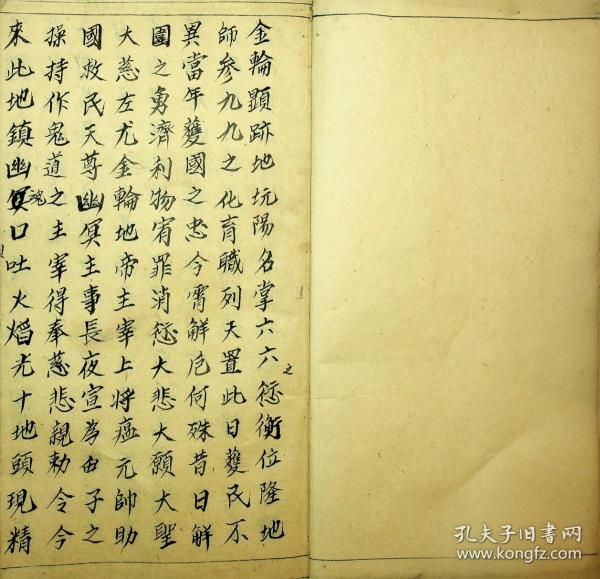 金輪顕跡地坑陽名掌六六之㣲衡位隆地
師參九九之化育職列天置此日護民不
異當年護國之忠今霄解危何殊昔日解
圍之勇濟利物宥罪消愆大悲大願大聖
大慈左尤金輪地帝主宰上將瘟元帥助
國救民天尊幽冥主事長夜宣為 子之
操持作鬼道之主宰得奉慈悲親勅令今
來此地鎮幽冥魂口吐火焰光十地頭現精
孔夫子旧书网
www.kongfz.com